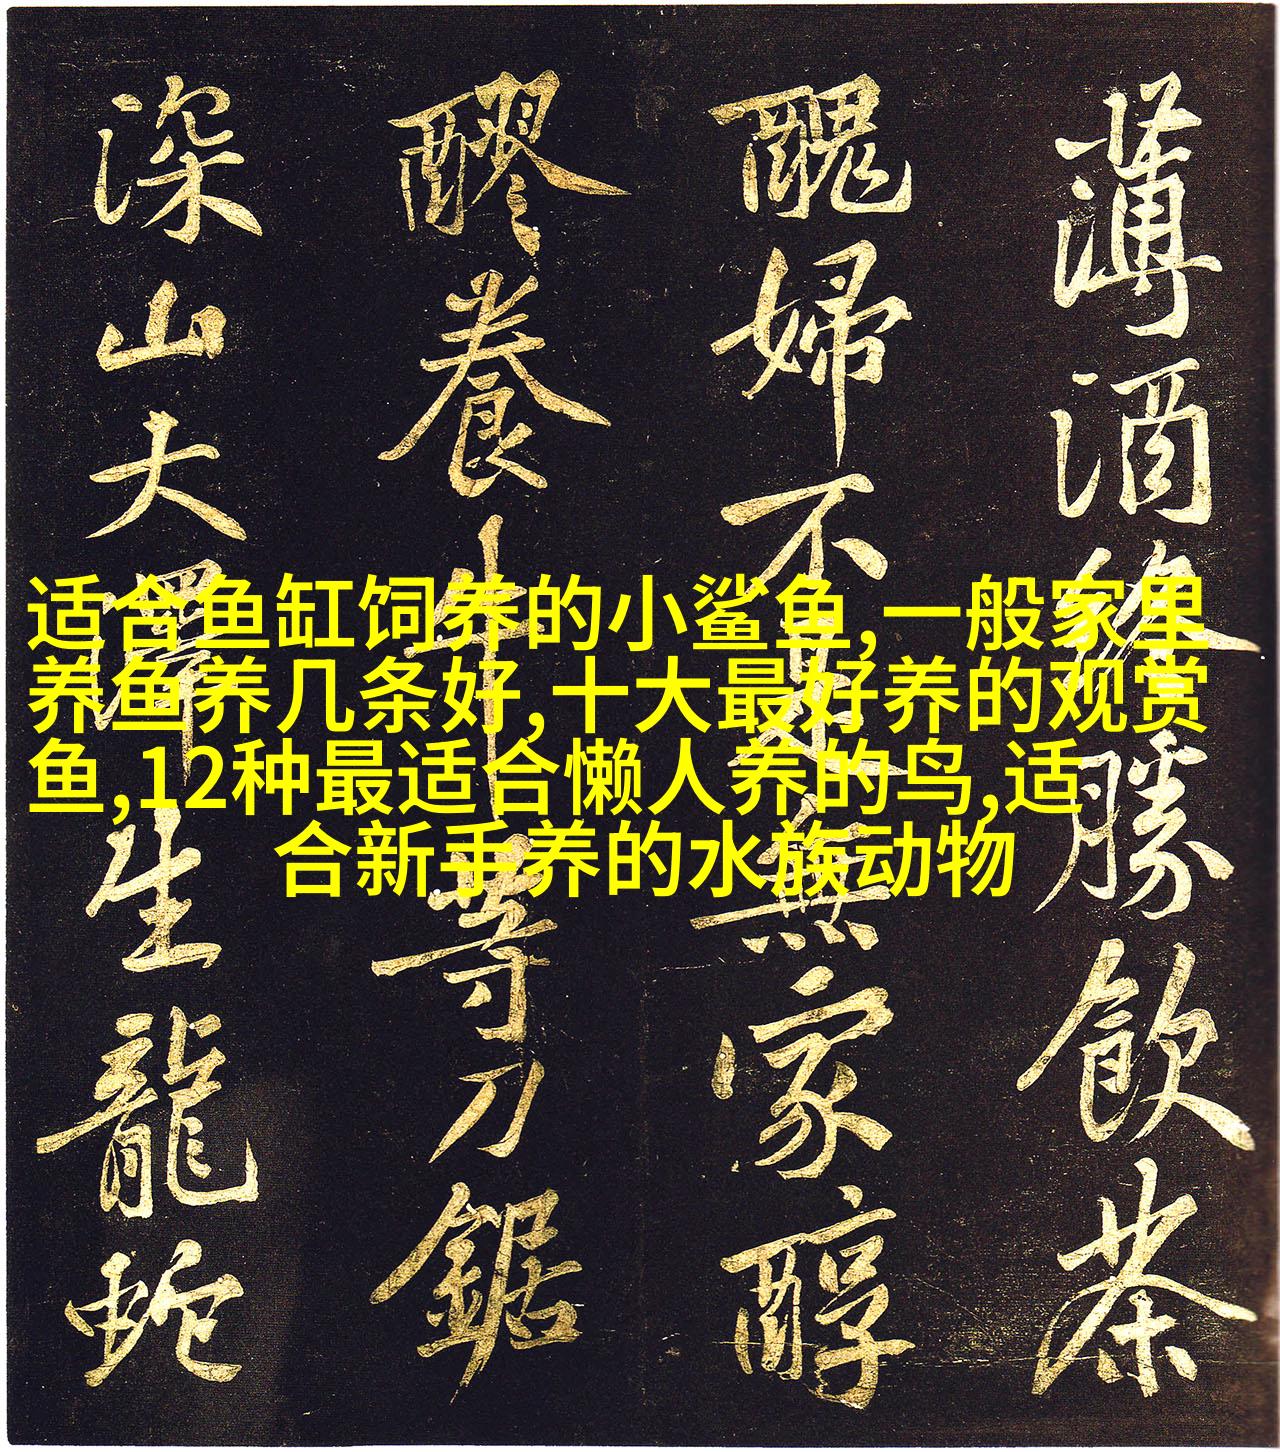 薄酒終勝飲茶
醜婦不是無家醇
醪養牛等刀鋸
深山大澤生龍蛇
适合鱼缸饲养的小鲨鱼,一般家里
养鱼养几条好,十大最好养的观赏
鱼,12种最适合懒人养的鸟,适
合新手养的水族动物